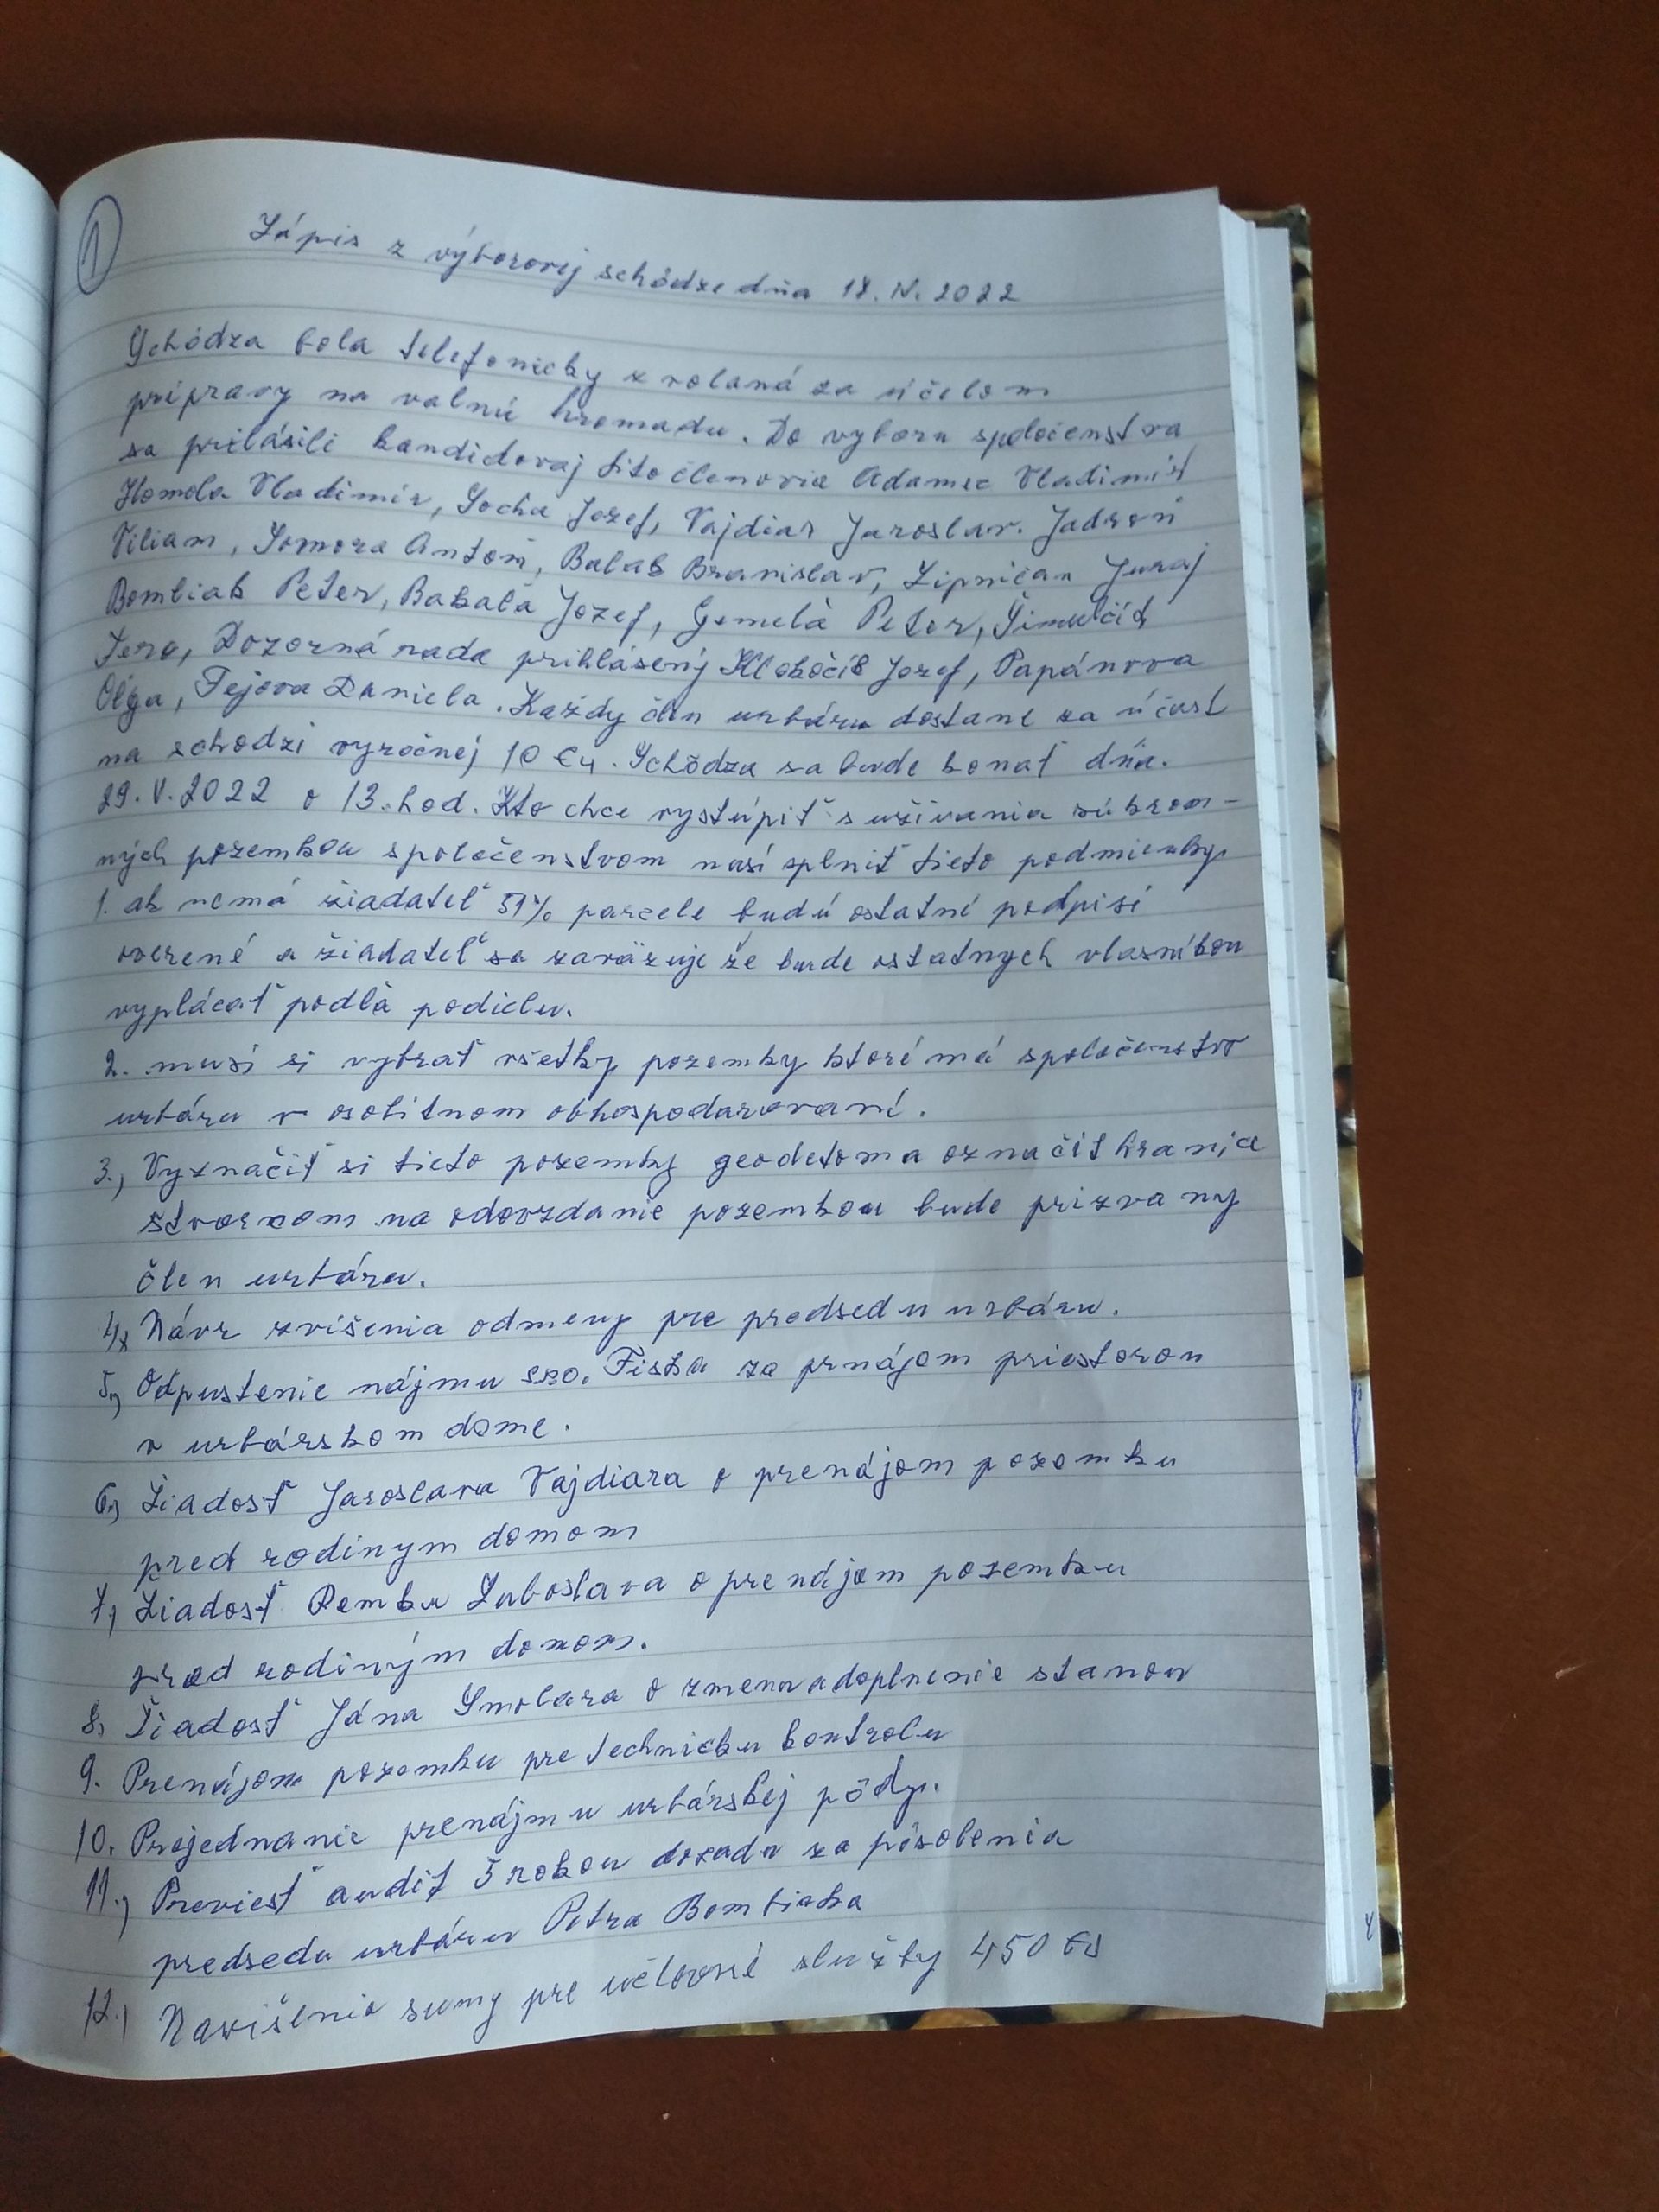 1
Zápis z výborovej schôdze dňa 18. IV. 2022
Schôdza bola telefonicky zvolaná za účelom
prípravy na valnú hromadu. Do vyboru spoločenstva
sa prihlásili kandidovaj títo členovia Adamec Vladimír
Homola Vladimír, Socha Jozef, Vajdiar Jaroslav. Jadroň
Viliam, Somora Anton, Balak Branislav, Lipničan Juraj
Bombiak Peter, Bakala Jozef, Gemela Peter, Šimulčík
Jero, Dozorná rada prihlásený Klobočík Jozef, Papánova
Olga, Fejova Daniela. Každý člen urbáru dostane za účast
na schodzi vyročnej 10 €. Schôdza sa bude konať dňa.
29. V. 2022 o 13. hod. Kto chce vystúpiť s užívania súkrom-
ných pozemkou spoločenstvom musí splniť tieto podmienky
1. ak nemá žiadateľ 51% parcele budú ostatné podpisi
overené a žiadateľ sa zaväzuje že bude ostatnych vlasníkou
vyplácať podľa podielu.
2. musí si vybrať všetky pozemky ktoré má spoločenstvo
urbáru v osobitnom obhospodarovaní.
3., Vyznačiť si tieto pozemky geodetom a označiť hranice
štvorcom na odovzdanie pozemkou bude prizvany
člen urbáru.
4, Návr zvišenia odmeny pre predsedu urbáru.
5, Odpustenie nájmu sro. Fiska za prnájom priestorou
v urbárskom dome.
6, Žiadosť Jaroslava Vajdiara o prenájom pozemku
pred rodinym domom
7, Žiadosť Remku Ľuboslava o prenájom pozemku
pred rodiným domom.
8, Žiadosť Jána Smolara o zmenu a doplnenie stanou
9. Prenájom pozemku pre technicku kontrolu
10. Prejednanie prenájmu urbárskej pôdy.
11., Previesť audit 5 rokou dozadu za pôsobenia
predsedu urbáru Petra Bombiaka
12., Navišenie sumy pre účtovné služby 450 €